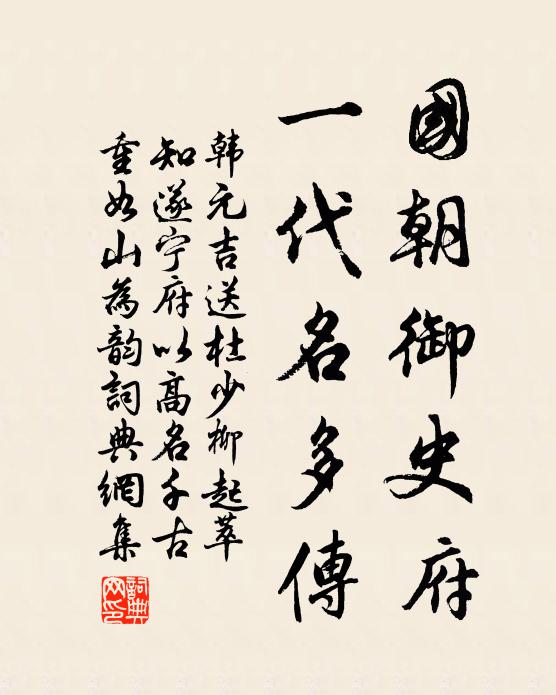 國朝御史府
一代名多傳
韩元吉送杜少柳起萃
知遂宁府以高名千古
重如山為韵詞典網集
詞典
网印